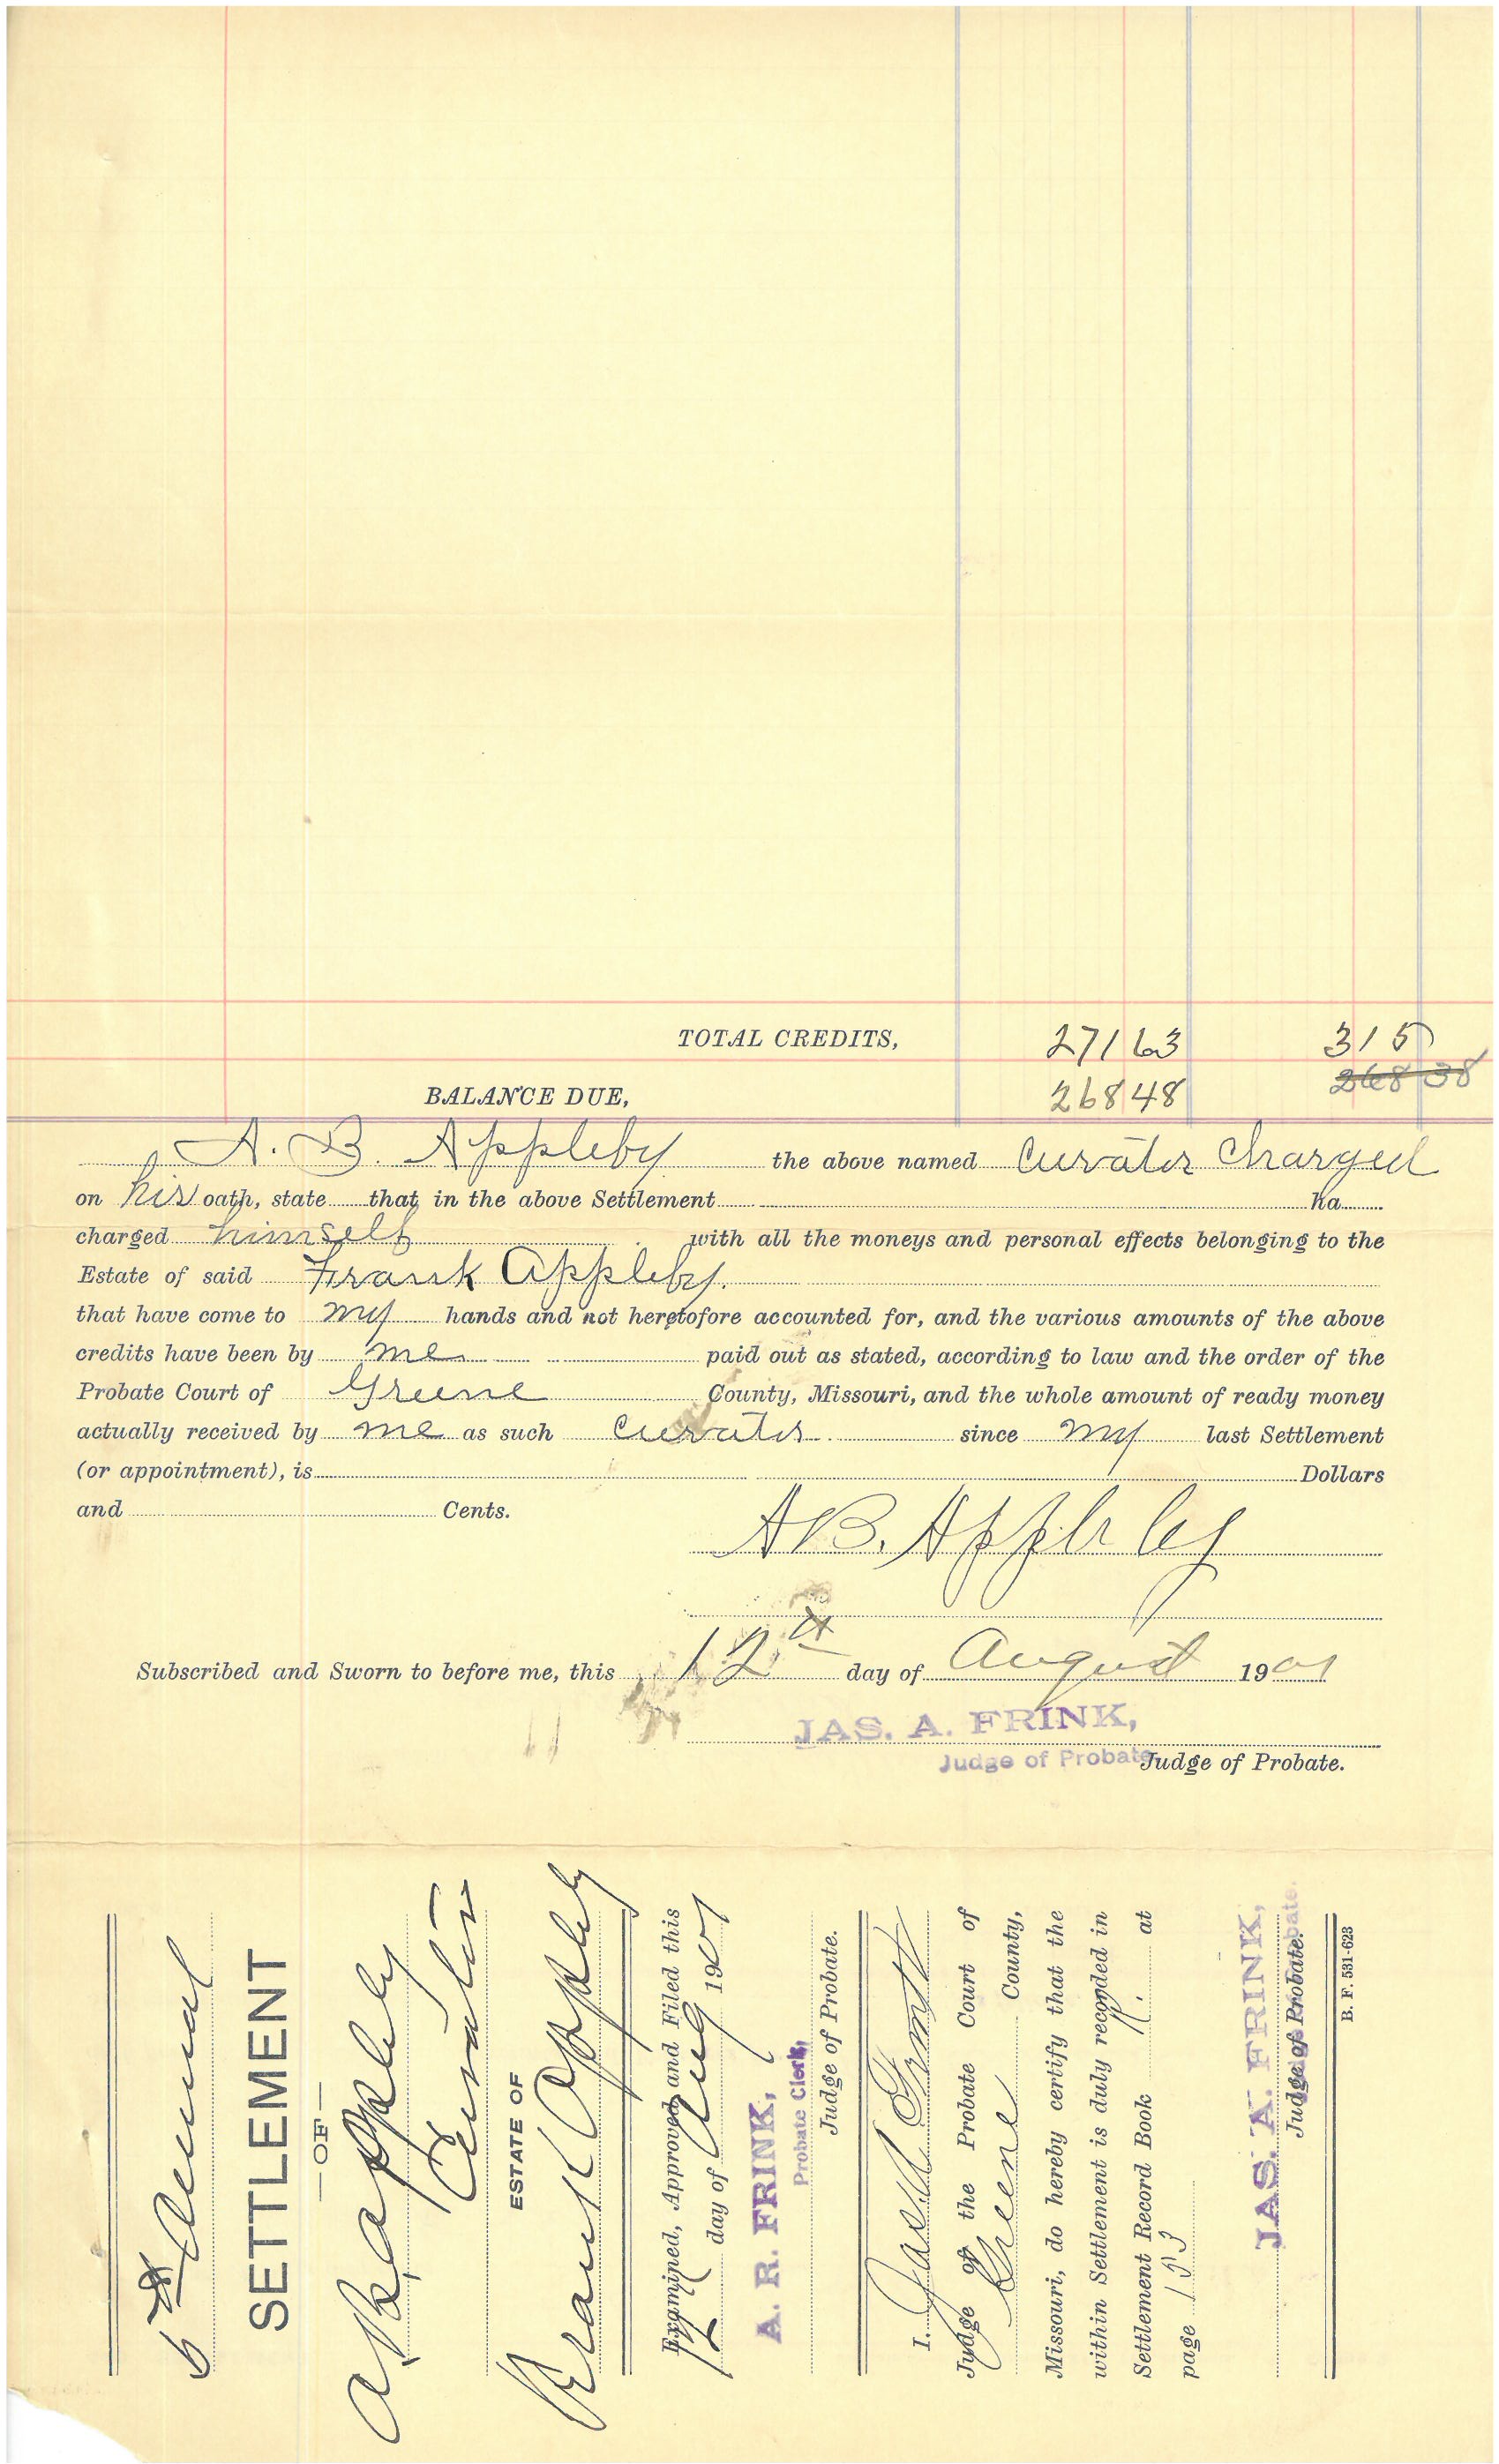 TOTAL CREDITS, 271 63 3 15
BALANCE DUE, 268 48 268 38
A. B. Appleby the above named Curator Charged
on his oath, state that in the above Settlement ha
charged himself with all the moneys and personal effects belonging to the
Estate of said Frank Appleby.
that have come to my hands and not heretofore accounted for, and the various amounts of the above
credits have been by me paid out as stated, according to law and the order of the
Probate Court of Greene County, Missouri, and the whole amount of ready money
actually received by me as such Curator since my last Settlement
(or appointment), is Dollars
and Cents.
A B. Appleby
Subscribed and Sworn to before me, this 12th day of August 1901
JAS. A. FRINK,
Judge of Probate Judge of Probate.
5th Annual
SETTLEMENT
—OF—
A. B. Appleby
Curator
ESTATE OF
Frank Appleby
Examined, Approved and Filed this
12 day of Aug 1901
A. R. FRINK,
Probate Clerk,
Judge of Probate.
I, Jas. A Frink
Judge of the Probate Court of
Greene County,
Missouri, do hereby certify that the
within Settlement is duly recorded in
Settlement Record Book at
page 153
JAS. A. FRINK,
Judge of Probate.
Judge of Probate.
B. F. 531-623